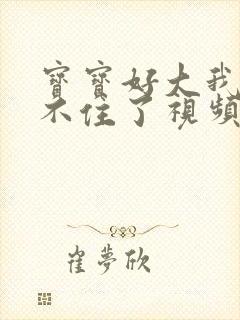 寶寶好大我
不住了視頻
崔夢欣